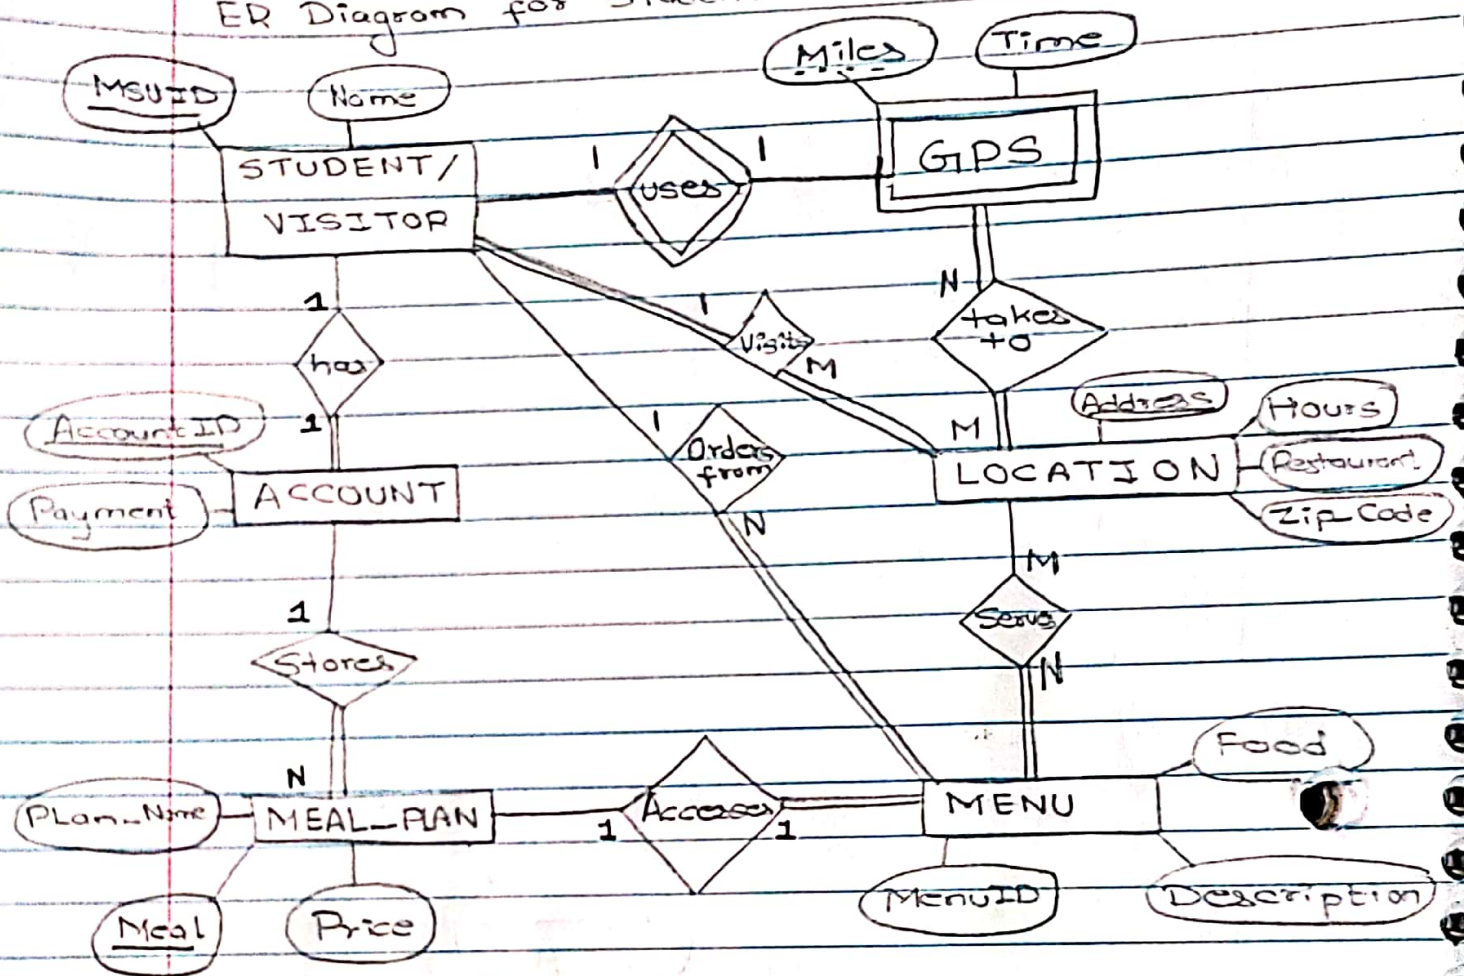 ER Diagram for
Miles
Time
MSUID
Name
STUDENT/
VISITOR
1
uses
1
GPS
1
has
1
1
Visits
M
N
takes
to
M
AccountID
Payment
ACCOUNT
1
Orders
from
N
Address
Hours
Restaurant
Zip_Code
LOCATION
M
Serves
N
1
Stores
N
Plan_Name
MEAL_PLAN
1
Accesses
1
MENU
Food
Meal
Price
MenuID
Description